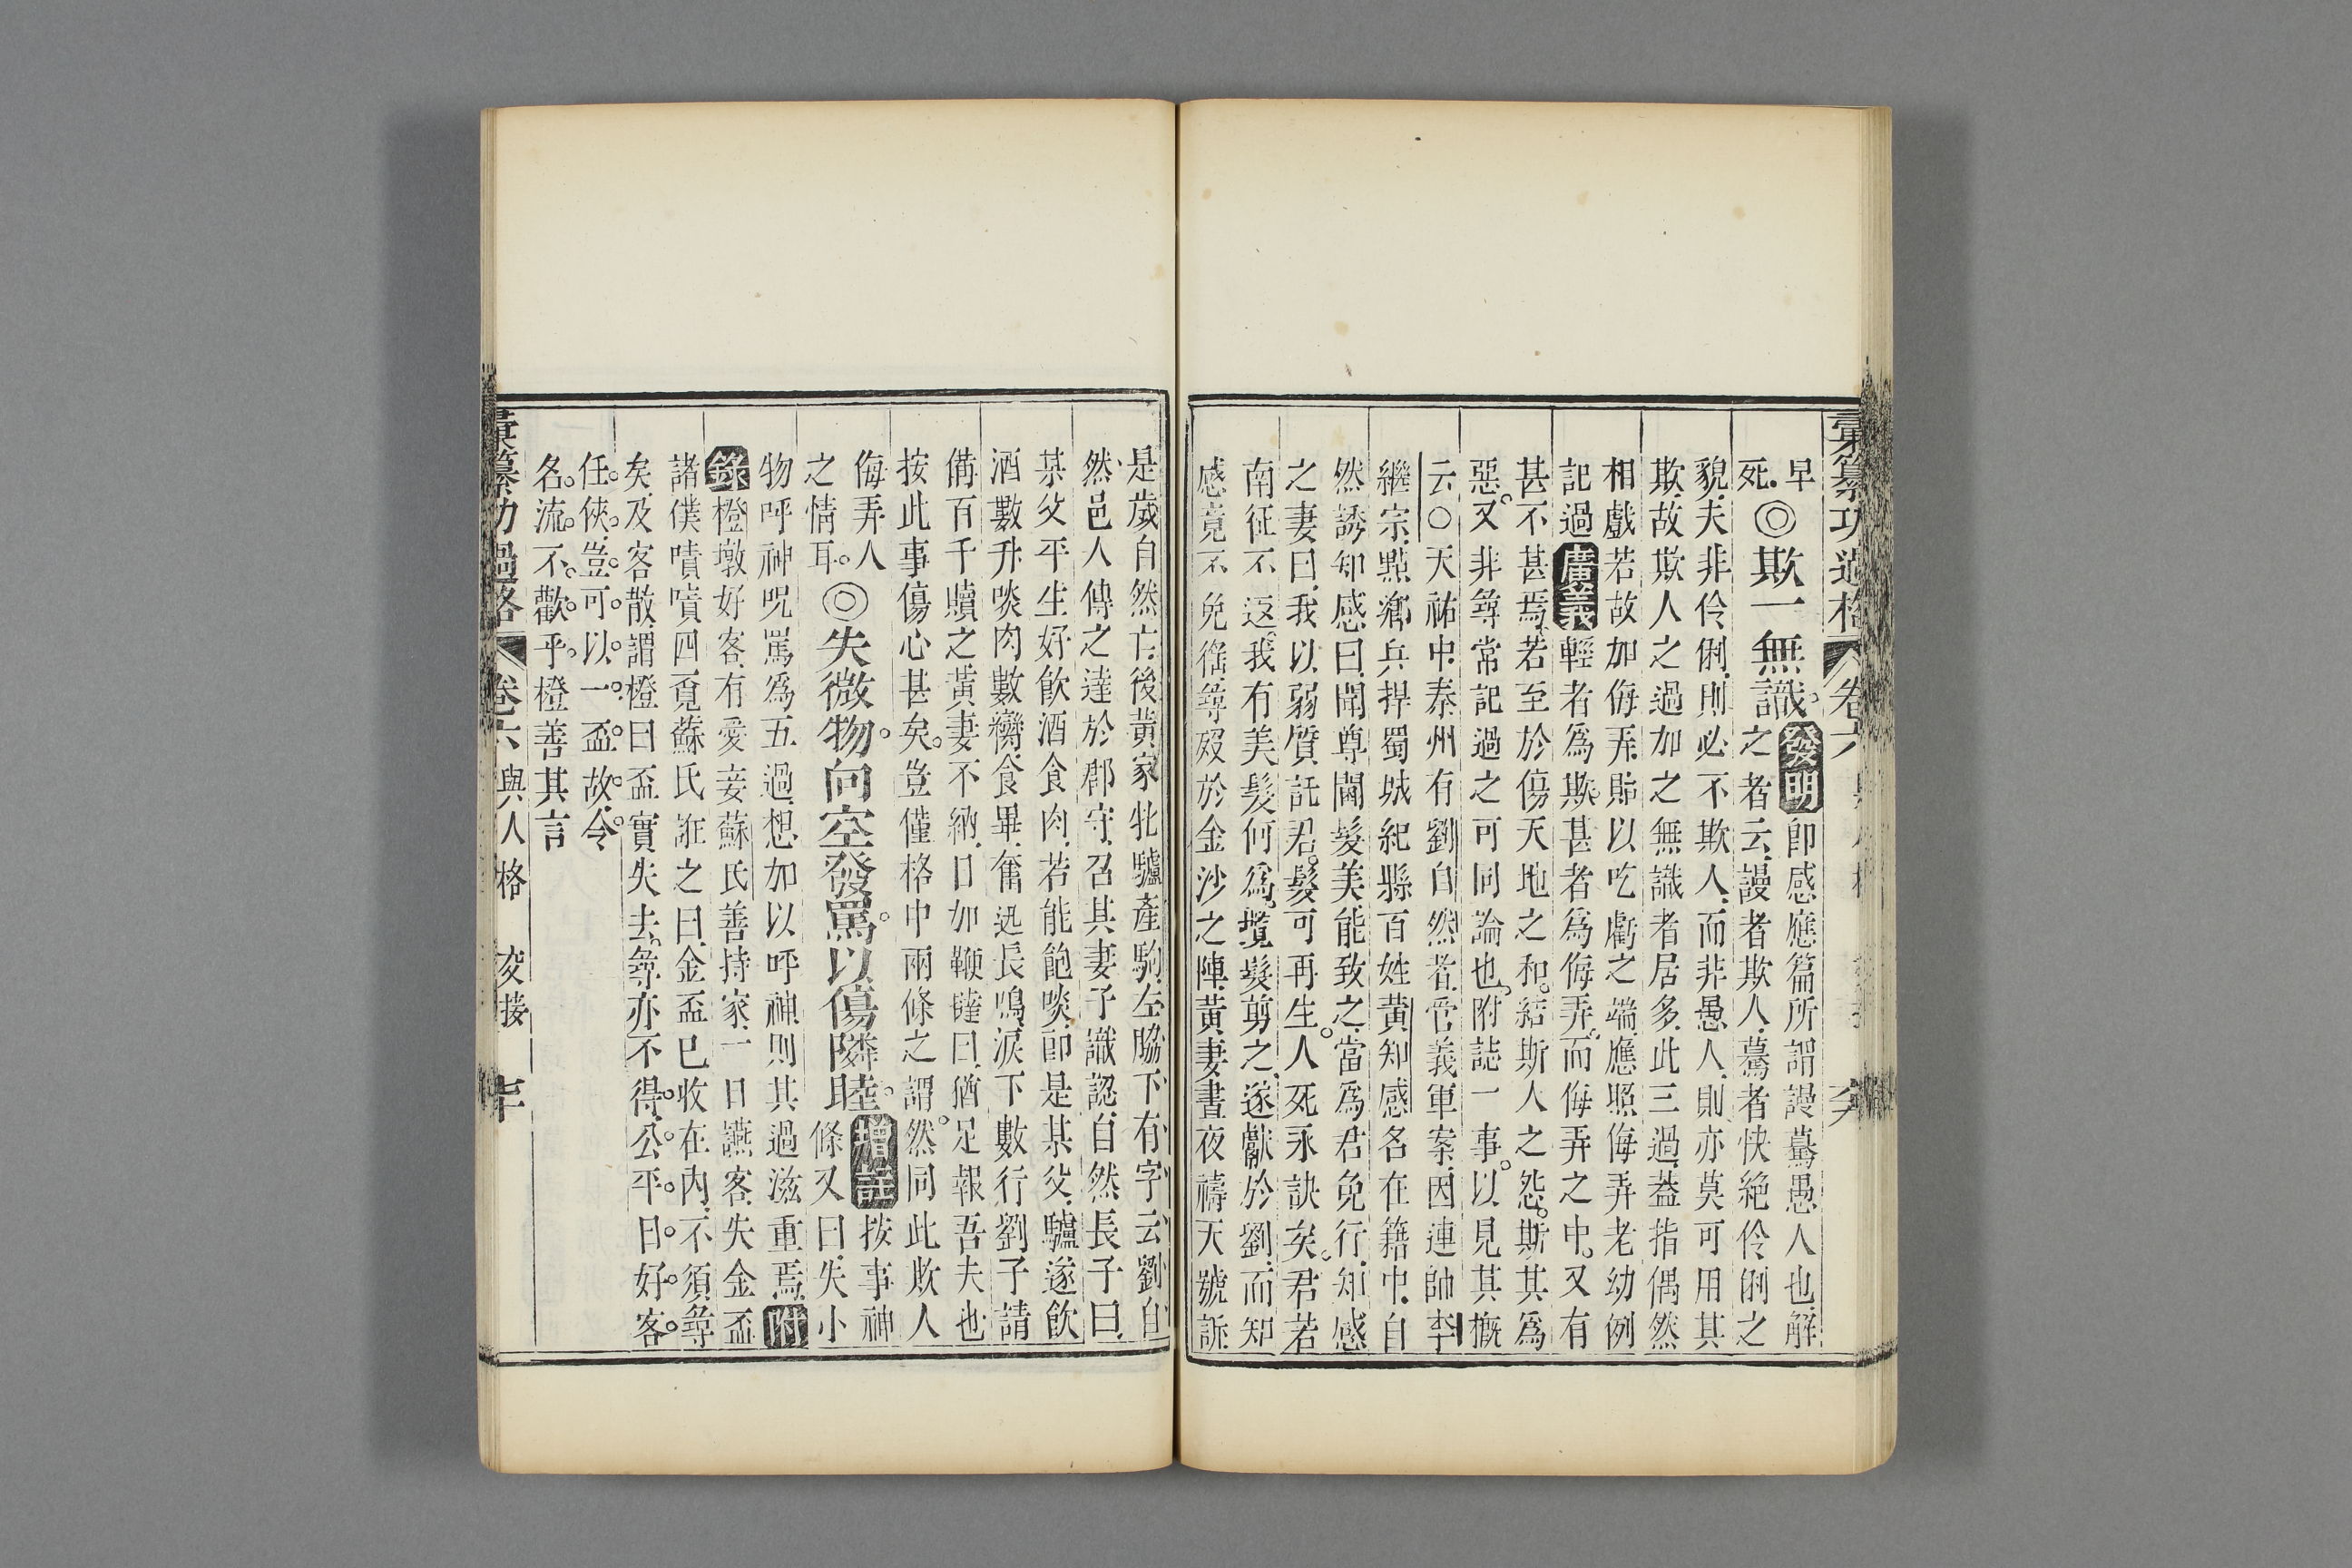 彙纂功過格 卷六
早
死◎欺一無識。發明卽感應篇所謂謾驀愚人也解
之者云謾者欺人驀者快絶伶俐之
貌夫非伶俐則必不欺人而非愚人則亦莫可用其
欺故欺人之過加之無識者居多此三過葢指偶然
相戲若故加侮弄歸以吃虧之端應照侮弄老幼例
記過廣義輕者爲欺甚者爲侮弄而侮弄之中又有
甚不甚焉若至於傷天地之和結斯人之怨斯其爲
惡又非尋常記過之可同論也附誌一事以見其概
云○天祐中秦州有劉自然者管義軍案因連帥李
繼宗點鄉兵捍蜀城紀縣百姓黄知感名在籍中自
然誘知感曰聞尊閫髮美能致之當爲君免行知感
之妻曰我以弱質託君髮可再生人死永訣矣君若
南征不返我有美髮何爲攬髮剪之遂獻於劉而知
感竟不免徭尋歿於金沙之陣黄妻晝夜禱天號訴
是歲自然亡後黄家牝驢產駒左脇下有字云劉自
然邑人傳之達於郡守召其妻子識認自然長子曰
某父平生好飲酒食肉若能飽啖卽是某父驢遂飲
酒數升啖肉數臠食畢奮迅長鳴淚下數行劉子請
備百千贖之黄妻不納日加鞭韃曰猶足報吾夫也
按此事傷心甚矣豈僅格中兩條之謂然同此欺人
侮弄人
之情耳◎失微物向空發罵以傷隣睦。增註按事神
條又曰失小
物呼神呪罵爲五過想加以呼神則其過滋重焉附
錄橙墩好客有愛妾蘇氏善持家一日讌客失金盃
諸僕嘖嘖四覓蘇氏誑之曰金盃已收在內不須尋
矣及客散謂橙曰盃實失去尋亦不得公平日好客
任俠豈可以一盃故令
名流不歡乎橙善其言
彙纂功過格 卷六 與人格 交接